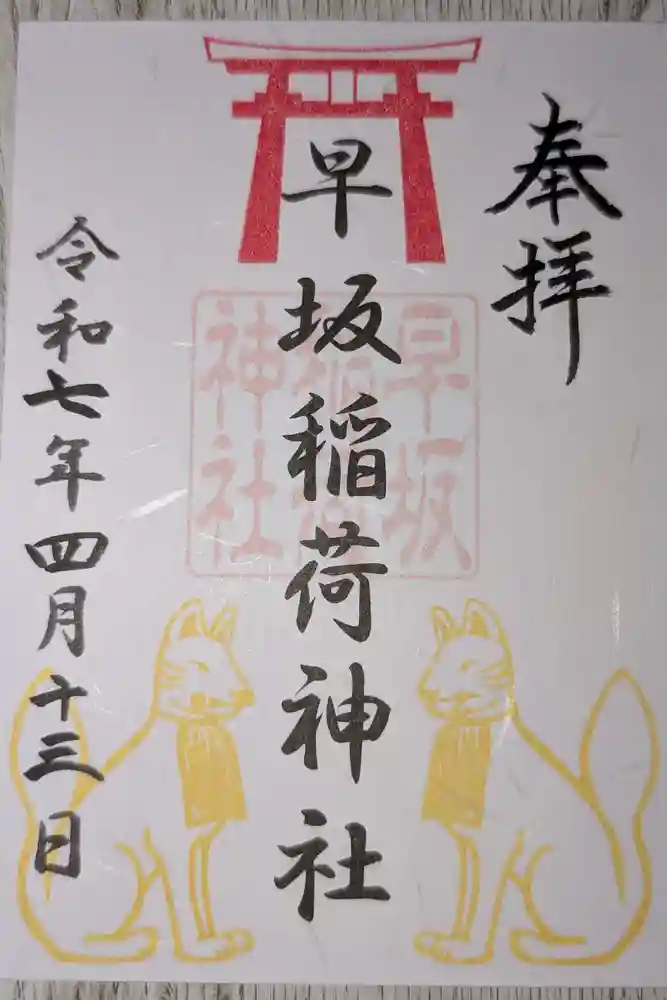 奉拝
早坂稲荷神社
早坂
稲荷
神社
令和七年四月十三日